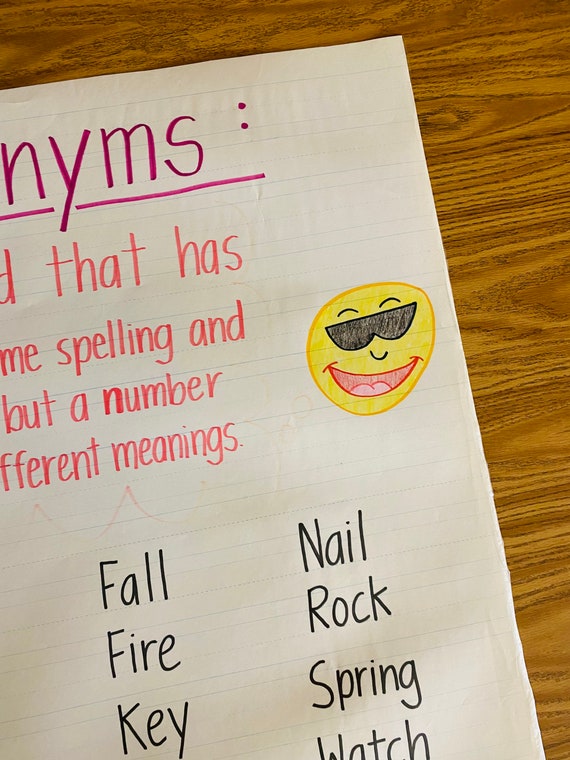 nyms:
d that has
me spelling and
but a number
fferent meanings.
Fall
Nail
Fire
Rock
Key
Spring
Watch